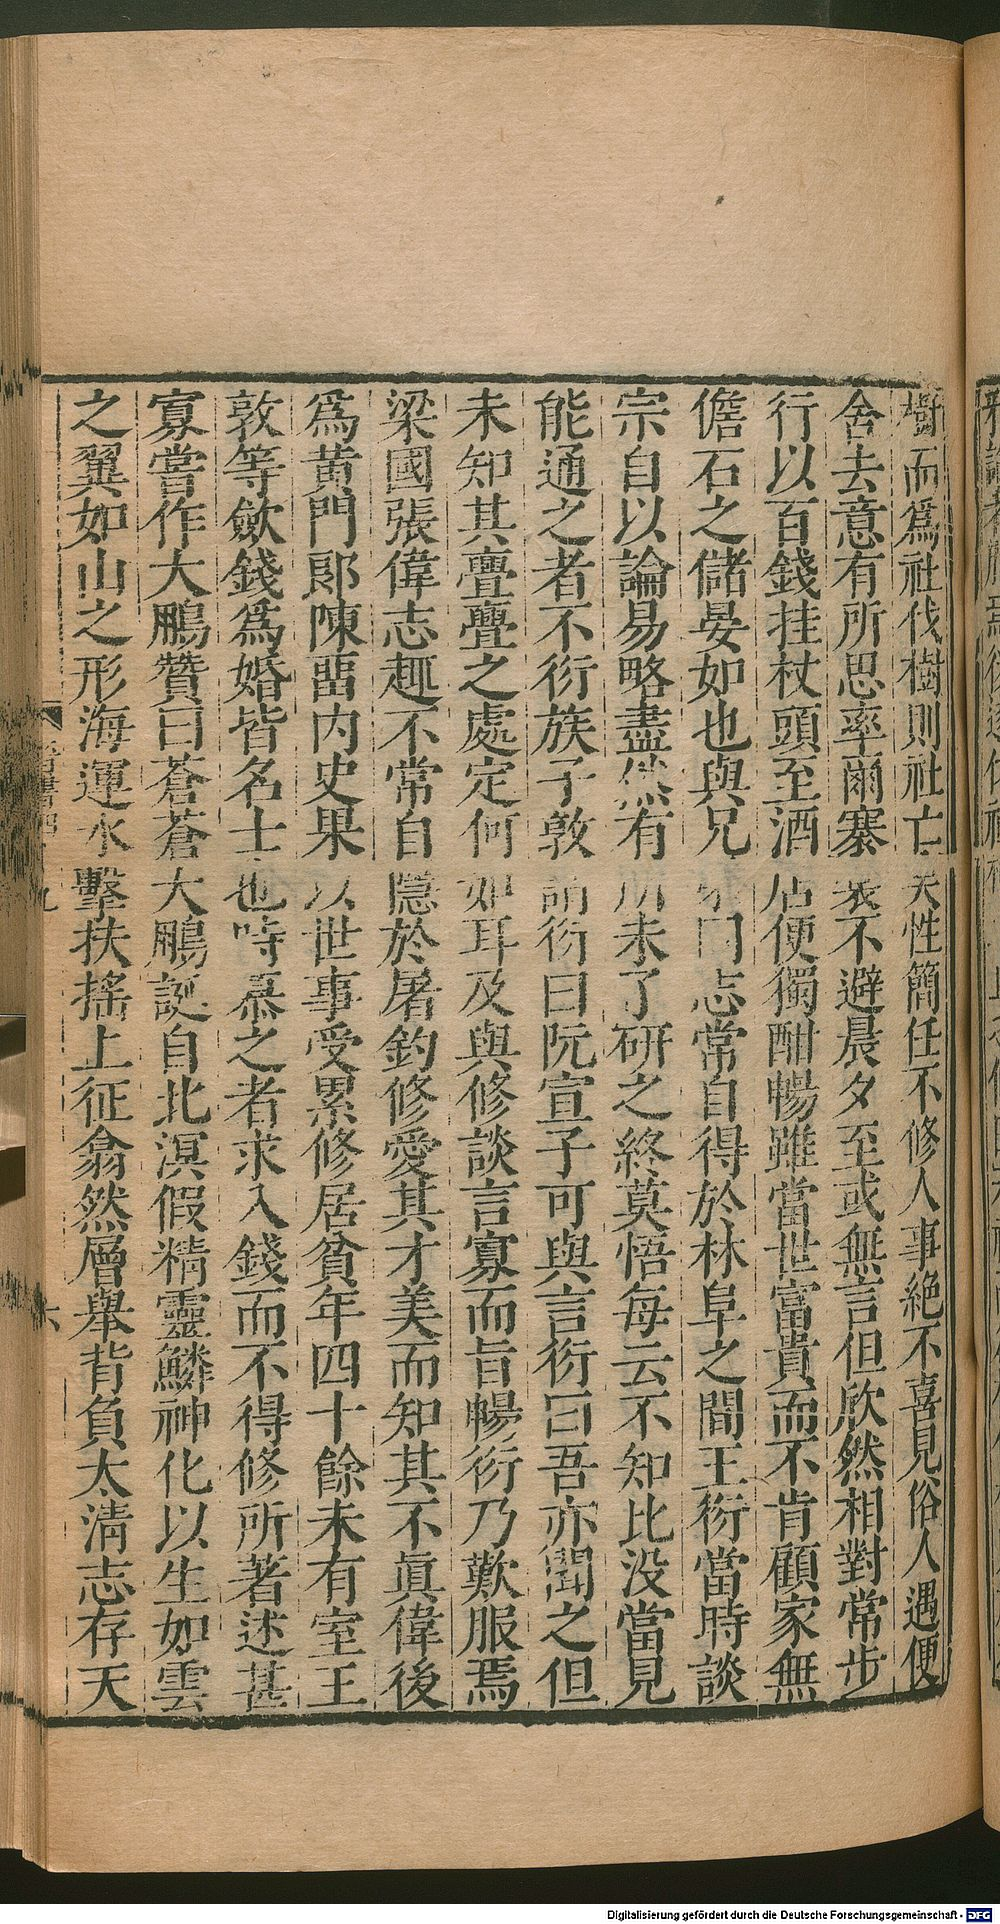 樹而爲社伐樹則社亡矣性簡任不修人事絶不喜見俗人遇便
舍去意有所思率爾褰裳不避晨夕至或無言但欣然相對常步
行以百錢挂杖頭至酒店便獨酣暢雖當世富貴而不肯顧家無
儋石之儲晏如也與兄弟同志常自得於林阜之間王衍當時談
宗自以論易略盡然有所未了硏之終莫悟每云不知比没當見
能通之者不衍族子敦謂衍曰阮宣子可與言衍曰吾亦聞之但
未知其亹亹之處定何如耳及與修談言寡而旨暢衍乃歎服焉
梁國張偉志趣不常自隱於屠釣修愛其才美而知其不眞偉後
爲黄門郞陳畱内史果以世事受累修居貧年四十餘未有室王
敦等斂錢爲婚皆名士也時慕之者求入錢而不得修所著述甚
寡嘗作大鵬贊曰蒼蒼大鵬誕自北溟假精靈鱗神化以生如雲
之翼如山之形海運水擊扶搖上征翕然層舉背負太淸志存天
Digitalisierung gefördert durch die Deutsche Forschungsgemeinschaft - DFG